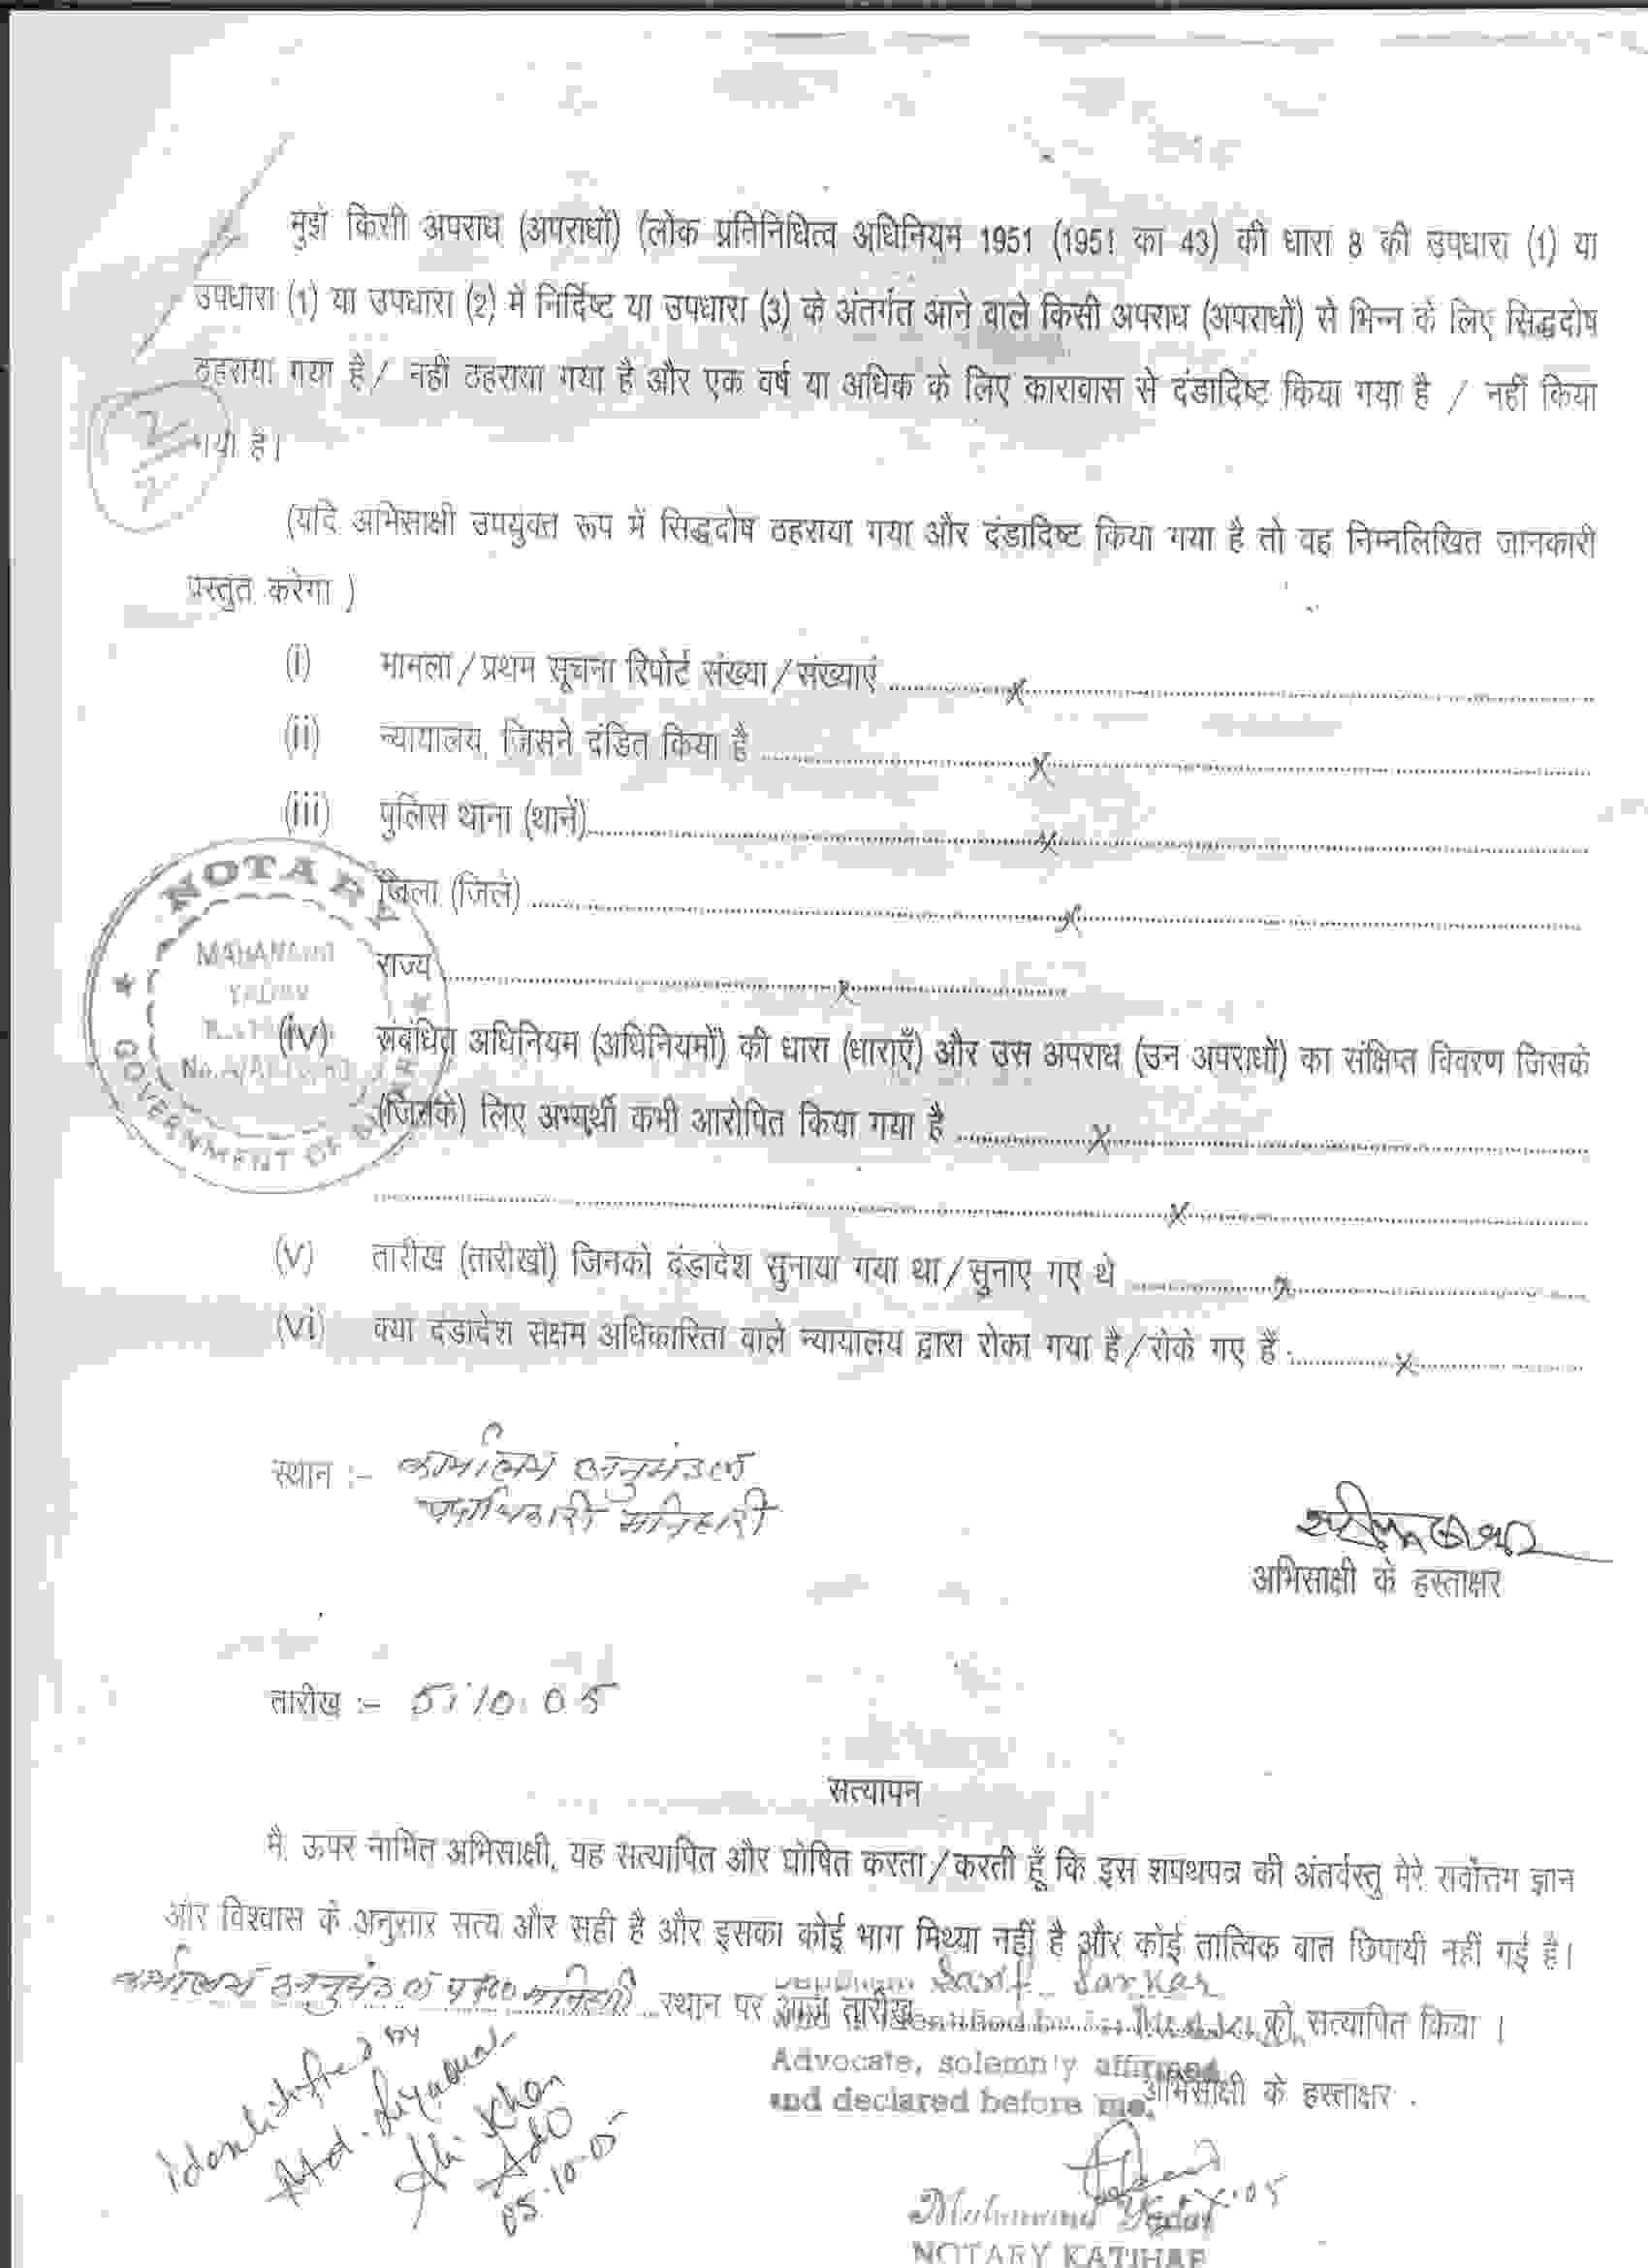 मुझे किसी अपराध (अपराधों) (लोक प्रतिनिधित्व अधिनियम 1951 (1951 का 43) की धारा 8 की उपधारा (1) या
उपधारा (1) या उपधारा (2) में निर्दिष्ट या उपधारा (3) के अंतर्गत आने वाले किसी अपराध (अपराधों) से भिन्न के लिए सिद्धदोष
ठहराया गया है / नहीं ठहराया गया है और एक वर्ष या अधिक के लिए कारावास से दंडादिष्ट किया गया है / नहीं किया
गया है।
2
(यदि अभिसाक्षी उपर्युक्त रूप में सिद्धदोष ठहराया गया और दंडादिष्ट किया गया है तो वह निम्नलिखित जानकारी
प्रस्तुत करेगा )
(i) मामला / प्रथम सूचना रिपोर्ट संख्या / संख्याएं ............x............
(ii) न्यायालय, जिसने दंडित किया है ............x............
(iii) पुलिस थाना (थानें)............x............
जिला (जिले) ............x............
राज्य ............x............
(iv) संबंधित अधिनियम (अधिनियमों) की धारा (धाराएँ) और उस अपराध (उन अपराधों) का संक्षिप्त विवरण जिसके
(जिनके) लिए अभ्यर्थी कभी आरोपित किया गया है ............x............
............x............
(v) तारीख (तारीखों) जिनको दंडादेश सुनाया गया था / सुनाए गए थे ............x............
(vi) क्या दंडादेश सक्षम अधिकारिता वाले न्यायालय द्वारा रोका गया है / रोके गए हैं ............x............
NOTARY
YADAV
GOVERNMENT OF BIHAR
स्थान :- कार्यालय अनुमंडल
पदाधिकारी मनिहारी
अभिसाक्षी के हस्ताक्षर
तारीख :- 5.10.05
सत्यापन
मैं, ऊपर नामित अभिसाक्षी, यह सत्यापित और घोषित करता / करती हूँ कि इस शपथपत्र की अंतर्वस्तु मेरे सर्वोत्तम ज्ञान
और विश्वास के अनुसार सत्य और सही है और इसका कोई भाग मिथ्या नहीं है और कोई तात्विक बात छिपायी नहीं गई है।
कार्यालय अनुमंडल मनिहारी स्थान पर आज तारीख ............ को सत्यापित किया ।
Sarkar
identified by
Advocate, solemnly affirmed
and declared before me.
अभिसाक्षी के हस्ताक्षर
Identified by
Md.
Khan
Adv
05.10.05
Yadav
NOTARY KATIHAR